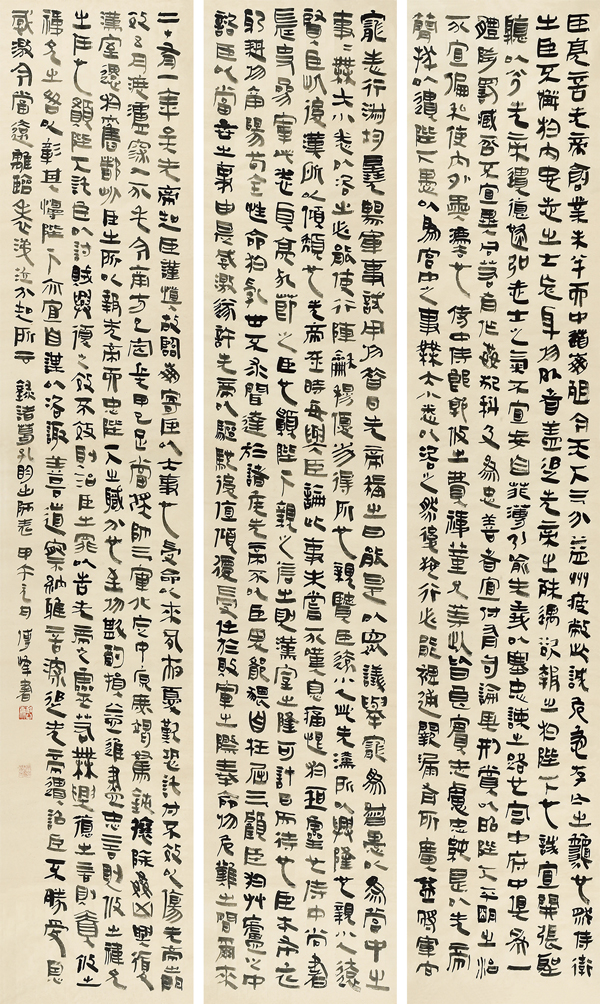 臣亮言先帝創業未半而中道崩殂今天下三分益州疲敝此誠危急存亡之秋也然侍衛
之臣不懈於內忠志之士忘身於外者蓋追先帝之殊遇欲報之於陛下也誠宜開張聖
聽以光先帝遺德恢弘志士之氣不宜妄自菲薄引喻失義以塞忠諫之路也宮中府中俱為一
體陟罰臧否不宜異同若有作姦犯科及為忠善者宜付有司論其刑賞以昭陛下平明之治
不宜偏私使內外異法也侍中侍郎郭攸之費禕董允等此皆良實志慮忠純是以先帝
簡拔以遺陛下愚以為宮中之事無大小悉以咨之然後施行必能裨補闕漏有所廣益將軍向
寵志行淑均曉暢軍事試用於昔日先帝稱之曰能是以眾議舉寵為督愚以為營中之
事事無大小悉以咨之必能使行陣和穆優劣得所也親賢臣遠小人此先漢所以興隆也親小人遠
賢臣此後漢所以傾頹也先帝在時每與臣論此事未嘗不嘆息痛恨於桓靈也侍中尚書
長史參軍此悉貞亮死節之臣也願陛下親之信之則漢室之隆可計日而待也臣本布衣
躬耕南陽苟全性命於亂世不求聞達於諸侯先帝不以臣卑鄙猥自枉屈三顧臣於草廬之中
諮臣以當世之事由是感激遂許先帝以驅馳後值傾覆受任於敗軍之際奉命於危難之間爾來
二十有一年矣先帝知臣謹慎故臨崩寄臣以大事也受命以來夙夜憂歎恐託付不效以傷先帝之明
故五月渡瀘深入不毛今南方已定兵甲已足當獎帥三軍北定中原庶竭駑鈍攘除姦凶興復
漢室還於舊都此臣之所以報先帝而忠陛下之職分也至於斟酌損益進盡忠言則攸之禕允
之任也願陛下託臣以討賊興復之效不效則治臣之罪以告先帝之靈若無興德之言則責攸之
禕允之咎以彰其慢陛下亦宜自謀以咨諏善道察納雅言深追先帝遺詔臣不勝受恩
感激今當遠離臨表涕泣不知所云 錄諸葛孔明出師表 甲午 書